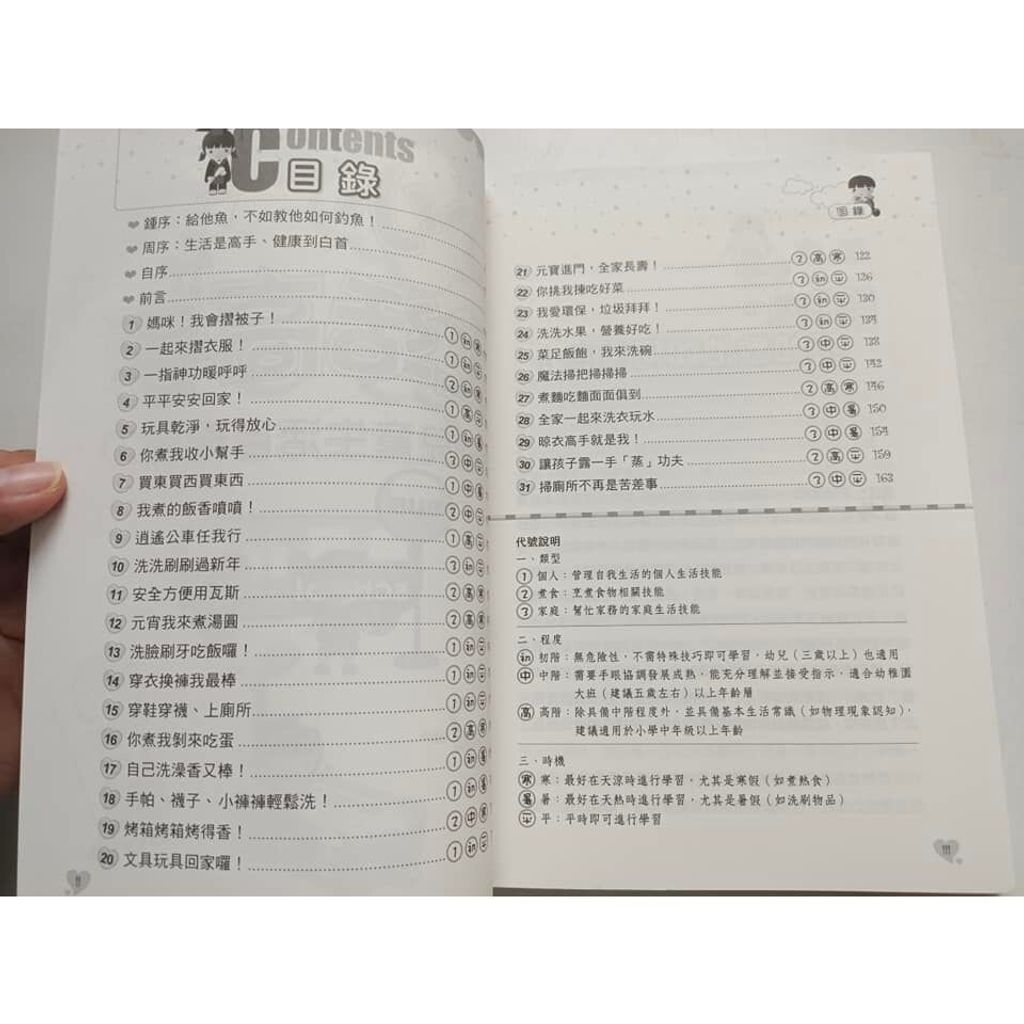 Contents
目錄
鍾序：給他魚，不如教他如何釣魚！
周序：生活是高手、健康到白首
自序
前言
1 媽咪！我會摺被子！ 1 初 寒
2 一起來摺衣服！ 1 初
3 一指神功暖呼呼 2 初 寒
4 平平安安回家！ 1 高 平
5 玩具乾淨，玩得放心 1 初 暑
6 你煮我收小幫手 3 中 平
7 買東買西買東西 1 中
8 我煮的飯香噴噴！ 2 中 平
9 逍遙公車任我行 1 高
10 洗洗刷刷過新年 3 初 平
11 安全方便用瓦斯 2 高 寒
12 元宵我來煮湯圓 2 高 寒
13 洗臉刷牙吃飯囉！ 1 初 平
14 穿衣換褲我最棒 1 初 平
15 穿鞋穿襪、上廁所 1 初 平
16 你煮我剝來吃蛋 2 高 寒
17 自己洗澡香又棒！ 1 初 暑
18 手帕、襪子、小褲褲輕鬆洗！ 1 初 暑
19 烤箱烤箱烤得香！ 2 中 寒
20 文具玩具回家囉！ 1 初 平
II
目錄
21 元寶進門，全家長壽！ 2 高 寒 122
22 你挑我揀吃好菜 3 初 平 126
23 我愛環保，垃圾拜拜！ 3 初 平 130
24 洗洗水果，營養好吃！ 3 初 平 134
25 菜足飯飽，我來洗碗 3 中 平 138
26 魔法掃把掃掃掃 3 中 平 142
27 煮麵吃麵面面俱到 2 高 寒 146
28 全家一起來洗衣玩水 3 中 暑 150
29 晾衣高手就是我！ 3 中 暑 154
30 讓孩子露一手「蒸」功夫 2 高 平 159
31 掃廁所不再是苦差事 3 中 平 163
代號說明
一、類型
1 個人：管理自我生活的個人生活技能
2 煮食：烹煮食物相關技能
3 家庭：幫忙家務的家庭生活技能
二、程度
初 初階：無危險性，不需特殊技巧即可學習，幼兒（三歲以上）也適用
中 中階：需要手眼協調發展成熟，能充分理解並接受指示，適合幼稚園
大班（建議五歲左右）以上年齡層
高 高階：除具備中階程度外，並具備基本生活常識（如物理現象認知），
建議適用於小學中年級以上年齡
三、時機
寒 寒：最好在天涼時進行學習，尤其是寒假（如煮熱食）
暑 暑：最好在天熱時進行學習，尤其是暑假（如洗刷物品）
平 平：平時即可進行學習
III